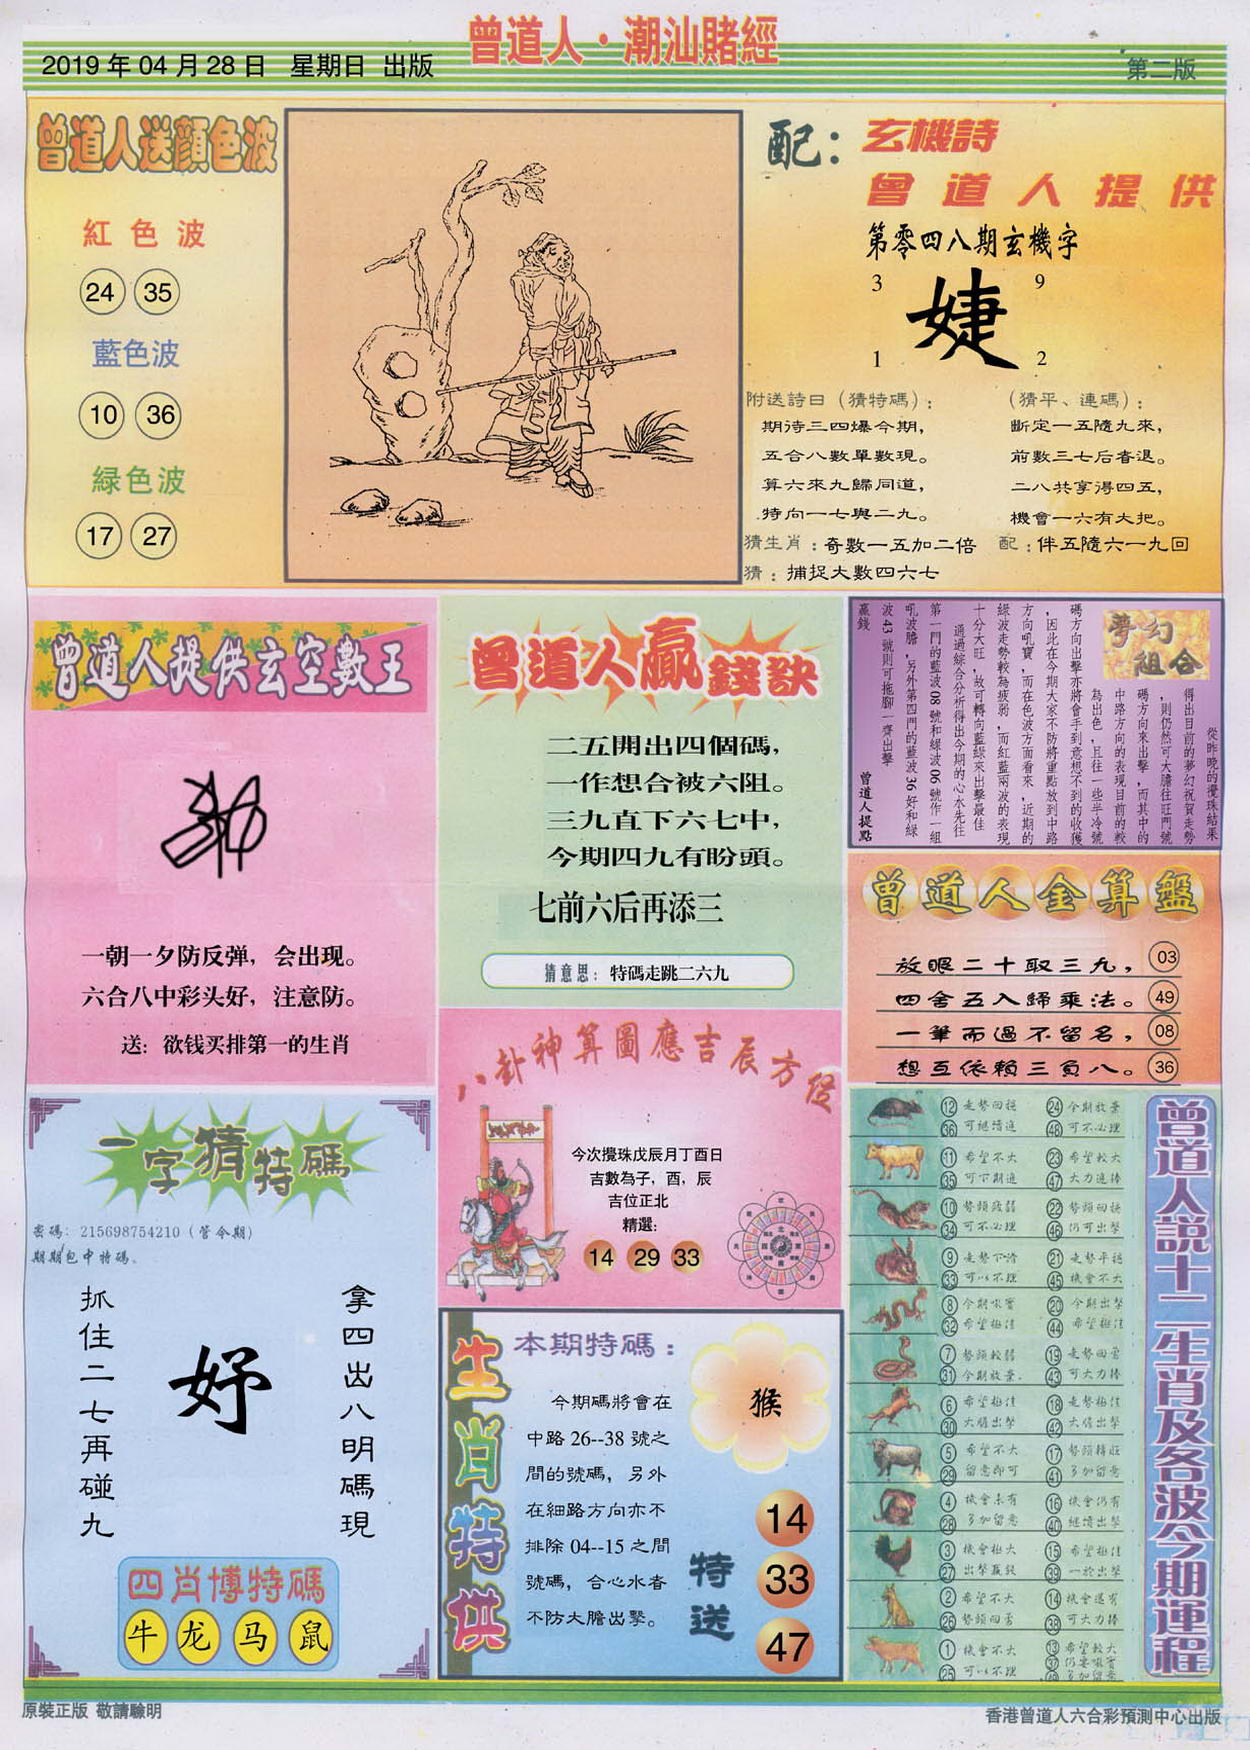 曾道人·潮汕賭經
2019 年 04 月 28 日 星期日 出版
第二版
曾道人送顔色波
紅色波
24 35
藍色波
10 36
緑色波
17 27
配：
玄機詩
曾道人提供
第零四八期玄機字
3 9
婕
1 2
附送詩曰（猜特碼）：
期待三四爆今期，
五合八數單數現。
算六來九歸同道，
特向一七與二九。
（猜平、連碼）：
斷定一五隨九來，
前數三七后者退。
二八共享得四五，
機會一六有大把。
猜生肖：奇數一五加二倍 配：伴五隨六一九回
猜：捕捉大數四六七
曾道人提供玄空數王
一朝一夕防反弹，会出现。
六合八中彩头好，注意防。
送：欲钱买排第一的生肖
曾道人贏錢訣
二五開出四個碼，
一作想合被六阻。
三九直下六七中，
今期四九有盼頭。
七前六后再添三
猜意思：特碼走跳二六九
夢幻組合
從昨晚的攪珠結果
得出目前的夢幻祝賀走勢
，則仍然可大膽往旺門號
碼方向來出擊，而其中的
中路方向的表現目前的較
為出色，且往一些半冷號
碼方向出擊亦將會手到意想不到的收獲
，因此在今期大家不防將重點放到中路
方向吼寶，而在色波方面看來，近期的
綠波走勢較為疲弱，而紅藍兩波的表現
十分大旺，故可轉向藍綠來出擊最佳
通過綜合分析得出今期的心水先往
第一門的藍波 08 號和綠波 06 號作一組
吼波膽，另外第四門的藍波 36 好和綠
波 43 號則可拖腳一齊出擊
贏錢
曾道人提點
曾道人金算盤
放眼二十取三九， 03
四舍五入歸乘法。 49
一筆而過不留名， 08
想互依賴三負八。 36
八卦神算圖應吉辰方位
今次攪珠戊辰月丁酉日
吉數為子，酉，辰
吉位正北
精選：
14 29 33
一字猜特碼
密碼：215698754210（管令期）
期期包中特碼。
抓住二七再碰九
妤
拿四出八明碼現
四肖博特碼
牛 龙 马 鼠
生肖特供
本期特碼：
今期碼將會在
中路 26--38 號之
間的號碼，另外
在細路方向亦不
排除 04--15 之間
號碼，合心水者
不防大膽出擊。
猴
特送
14
33
47
曾道人説十二生肖及各波今期運程
⑫ 走勢回穩 ㉔ 今期放棄
㊱ 可繼續追 ㊽ 可不必理
⑪ 希望不大 ㉓ 希望較大
㉟ 可下期追 ㊼ 大力追捧
⑩ 勢頭疲弱 ㉒ 勢頭回穩
㉞ 可不必理 ㊻ 仍可出擊
⑨ 走勢下滑 ㉑ 走勢平穩
㉝ 可以不理 ㊺ 機會不大
⑧ 今期吼寶 ⑳ 今期出擊
㉜ 希望極佳 ㊹ 希望極佳
⑦ 勢頭較弱 ⑲ 走勢回雷
㉛ 今期放棄 ㊸ 可大力捧
⑥ 希望極佳 ⑱ 走勢極佳
㉚ 大膽出擊 ㊷ 大膽出擊
⑤ 希望不大 ⑰ 勢頭轉旺
㉙ 留意即可 ㊶ 多加留意
④ 機會未有 ⑯ 機會仍有
㉘ 多加留意 ㊵ 繼續出擊
③ 機會極大 ⑮ 希望極佳
㉗ 出擊贏錢 ㊴ 一於出擊
② 希望不大 ⑭ 機會還有
㉖ 勢頭回雷 ㊳ 可大力捧
① 機會不大 ⑬ 希望較大
㉕ 可以不理 ㊲ 仍要吼寶
㊾ 多加留意
原裝正版 敬請驗明
香港曾道人六合彩預測中心出版